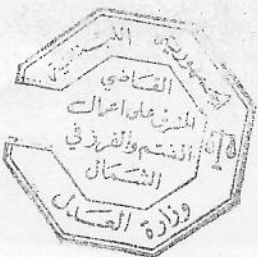 الجمهورية اللبنانية
القاضي
المشرف على اعمال
الضم والفرز في
الشمال
وزارة العدل